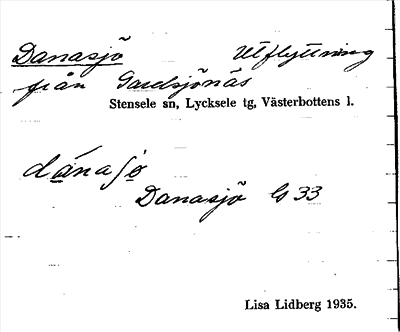 Danasjö Utflyttning
från Gardsjönäs
Stensele sn, Lycksele tg, Västerbottens l.
dánaʃo
Danasjö G 33
Lisa Lidberg 1935.